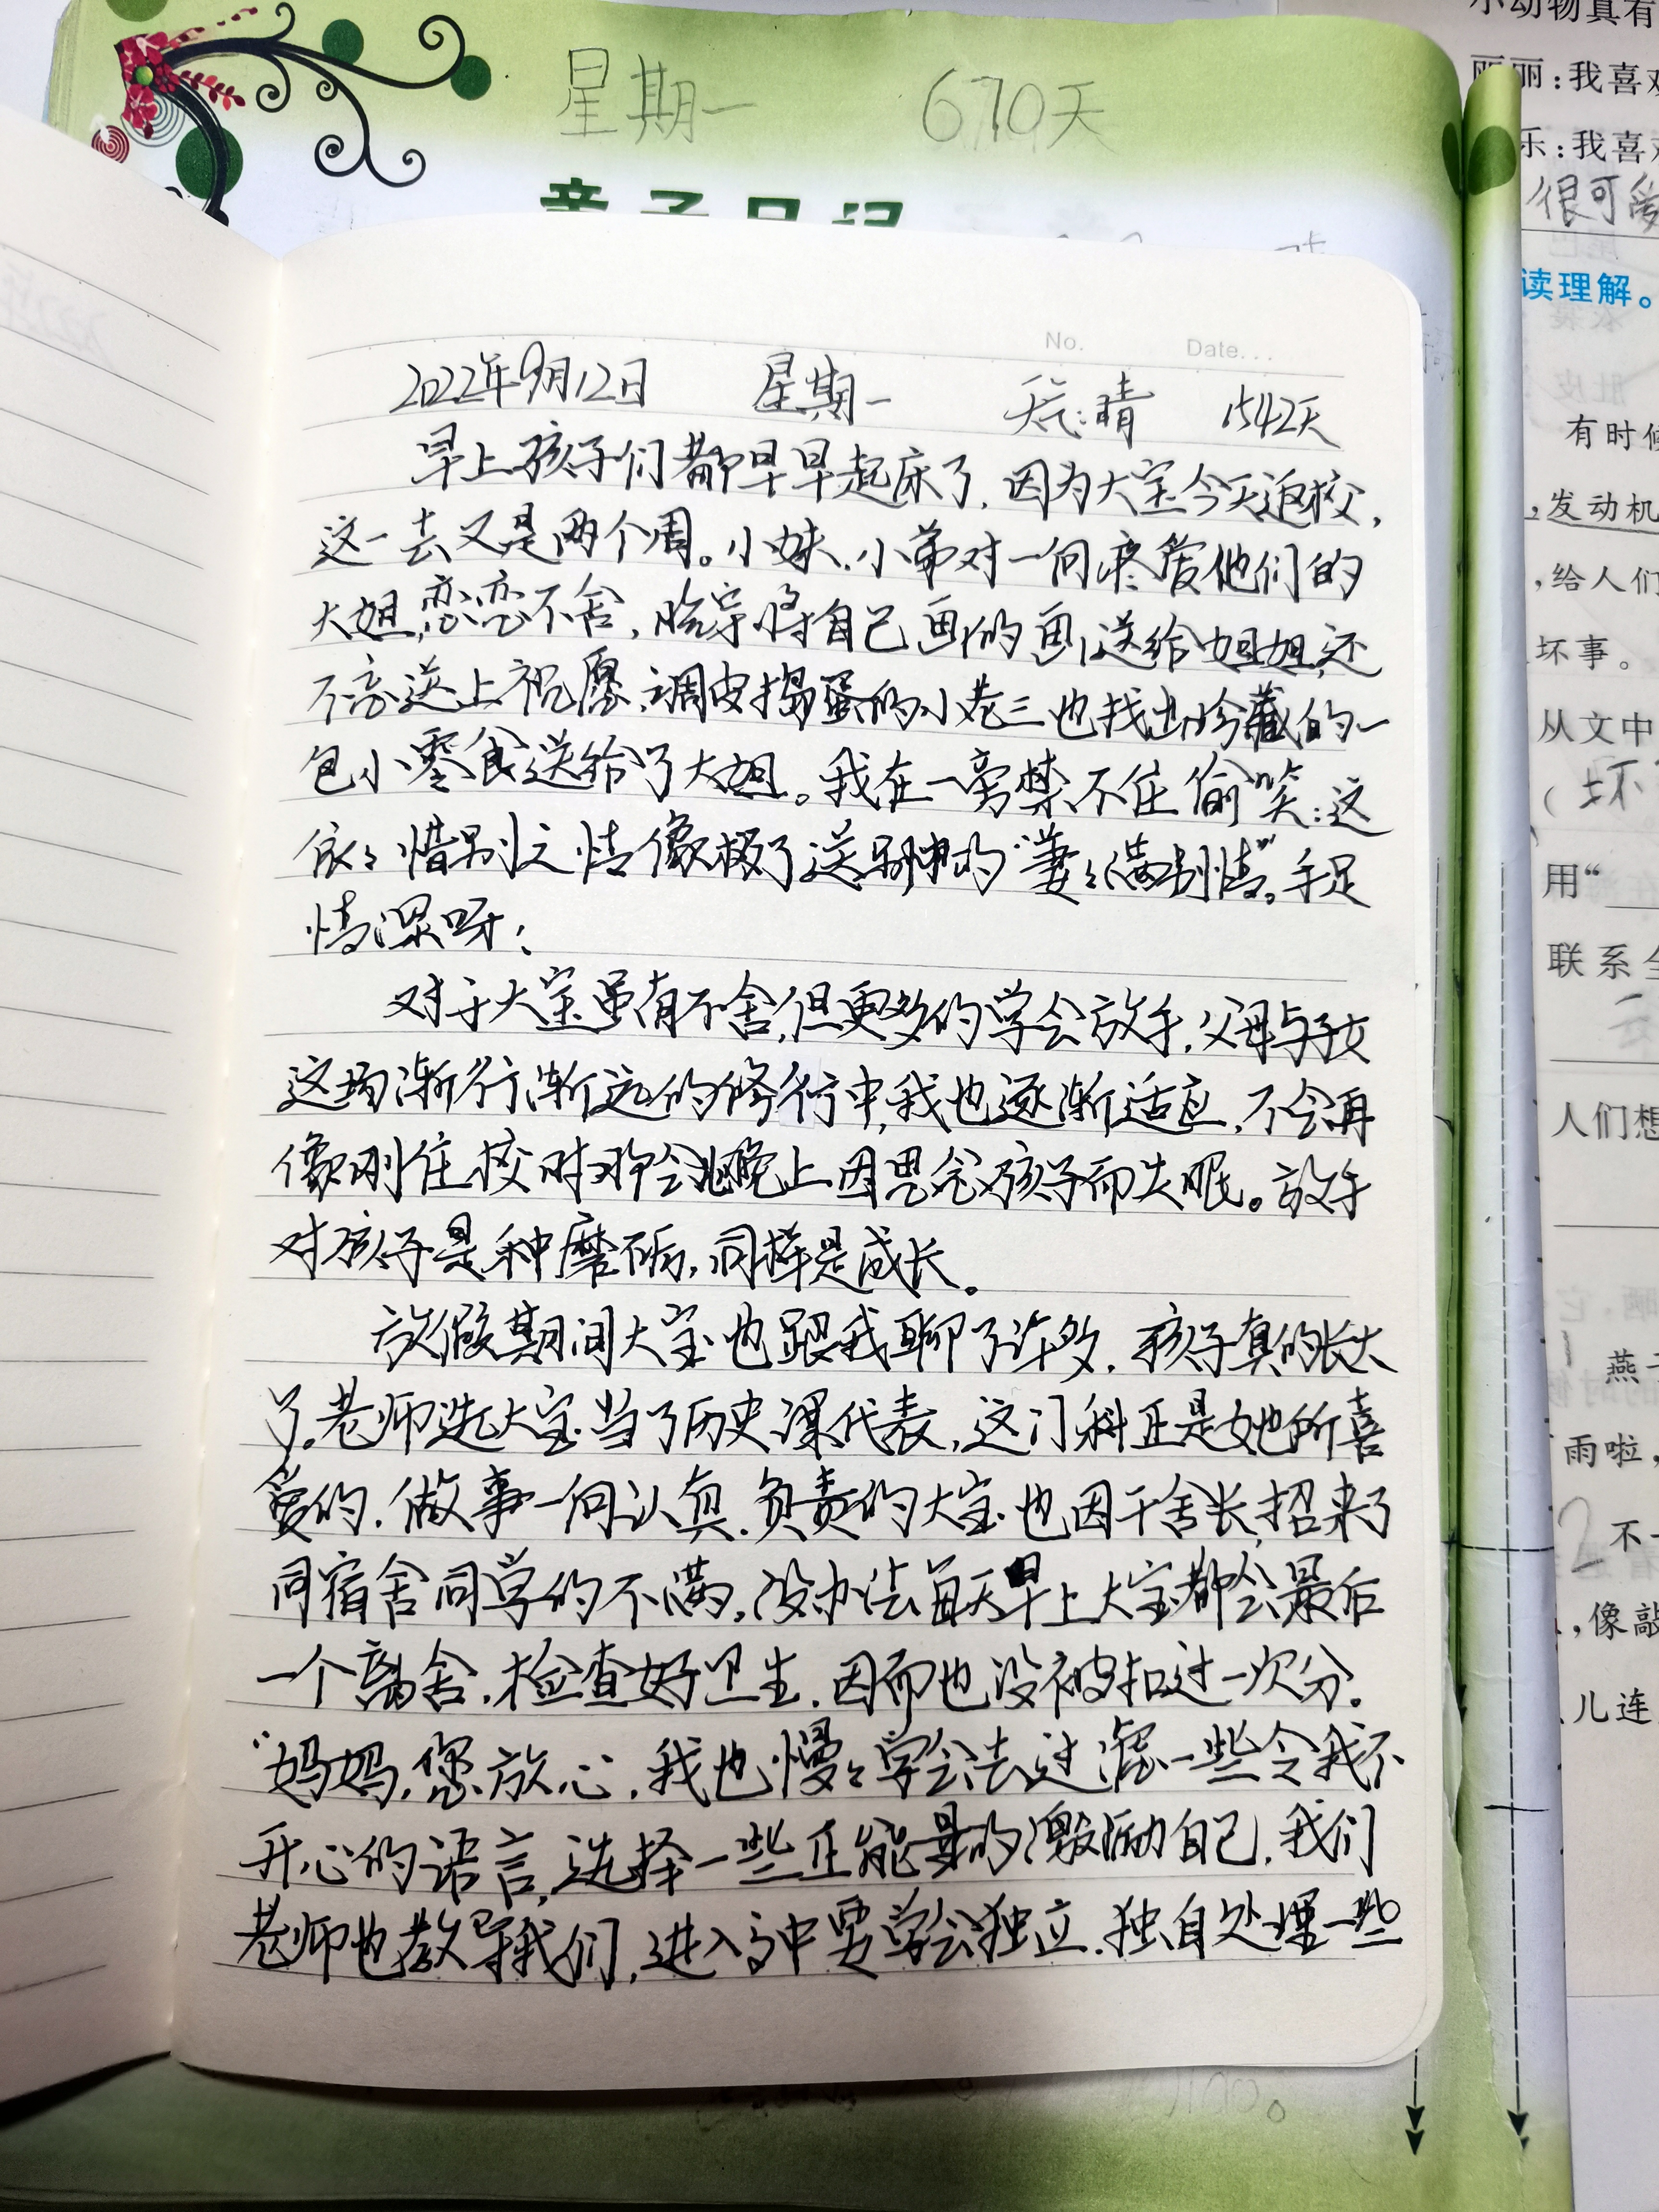 星期一 670天
亲子日记
No. Date...
2022年9月12日 星期一 天气:晴 1542天
早上孩子们都早早起床了,因为大宝今天返校,
这一去又是两个周。小妹、小弟对一向疼爱他们的
大姐,恋恋不舍,临字将自己画的画送给姐姐,还
不忘送上祝愿,调皮捣蛋的小老三也找出珍藏的一
包小零食送给了大姐。我在一旁禁不住偷笑:这
依々惜别之情像极了送别中的“萋々满别情”。手足
情深呀!
对于大宝虽有不舍,但更多的学会放手,父母与子女
这场渐行渐远的修行中,我也逐渐适应,不会再
像刚住校时那会儿晚上因思念孩子而失眠。放手
对孩子是种磨砺,同样是成长。
放假期间大宝也跟我聊了许多,孩子真的长大
了。老师选大宝当了历史课代表,这门科正是她所喜
爱的,做事一向认真、负责的大宝也因干舍长,招来了
同宿舍同学的不满,没办法每天早上大宝都会最后
一个离舍,检查好卫生,因而也没被扣过一次分。
“妈妈,您放心,我也慢々学会去过滤一些令我不
开心的语言,选择一些正能量的激励自己,我们
老师也教导我们,进入高中要学会独立,独自处理一些
小动物真有
丽丽:我喜欢
乐:我喜欢
很可爱
读理解。
肚皮
有时候
,发动机
,给人们
坏事。
从文中
( 坏
用“
联系全
人们想
燕子
雨啦,
2 不一
,像敲
儿连